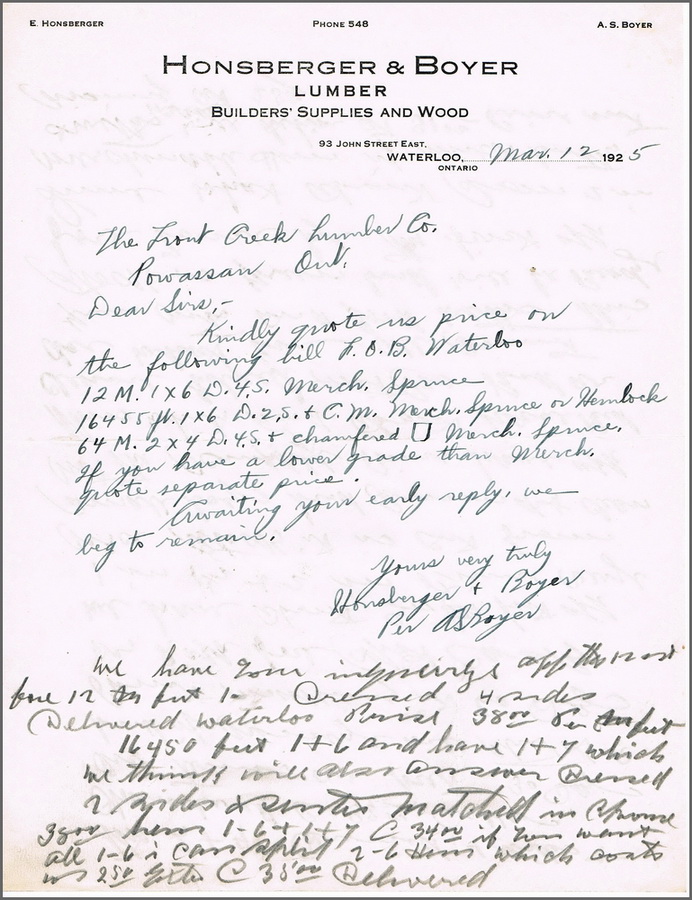 E. HONSBERGER PHONE 548 A. S. BOYER
HONSBERGER & BOYER
LUMBER
BUILDERS' SUPPLIES AND WOOD
93 JOHN STREET EAST,
WATERLOO, Mar. 12 1925
ONTARIO
The Trout Creek Lumber Co.
Powassan Ont.
Dear Sirs,-
Kindly quote us price on
the following bill F.O.B. Waterloo
12 M. 1x6 D.4.S. Merch. Spruce
16455 ft. 1x6 D.2.S. & C.M. Merch. Spruce or Hemlock
64 M. 2x4 D.4S. & chamfered Merch. Spruce.
If you have a lower grade than Merch.
quote separate price.
Awaiting your early reply, we
beg to remain.
Yours very truly
Honsberger & Boyer
Per ASBoyer
We have your of the 12 inst
12 M feet 1- Dressed 4 sides
Delivered waterloo 38⁰⁰ Per M feet
16450 feet 1+6 and have 1+7 which
we think will also answer Dressed
2 sides & matched in
38⁰⁰ 1-6 + 1+7 34⁰⁰ if you want
all 1-6 i can split 2-6 which costs
us 2⁵⁰ 38⁰⁰ Delivered